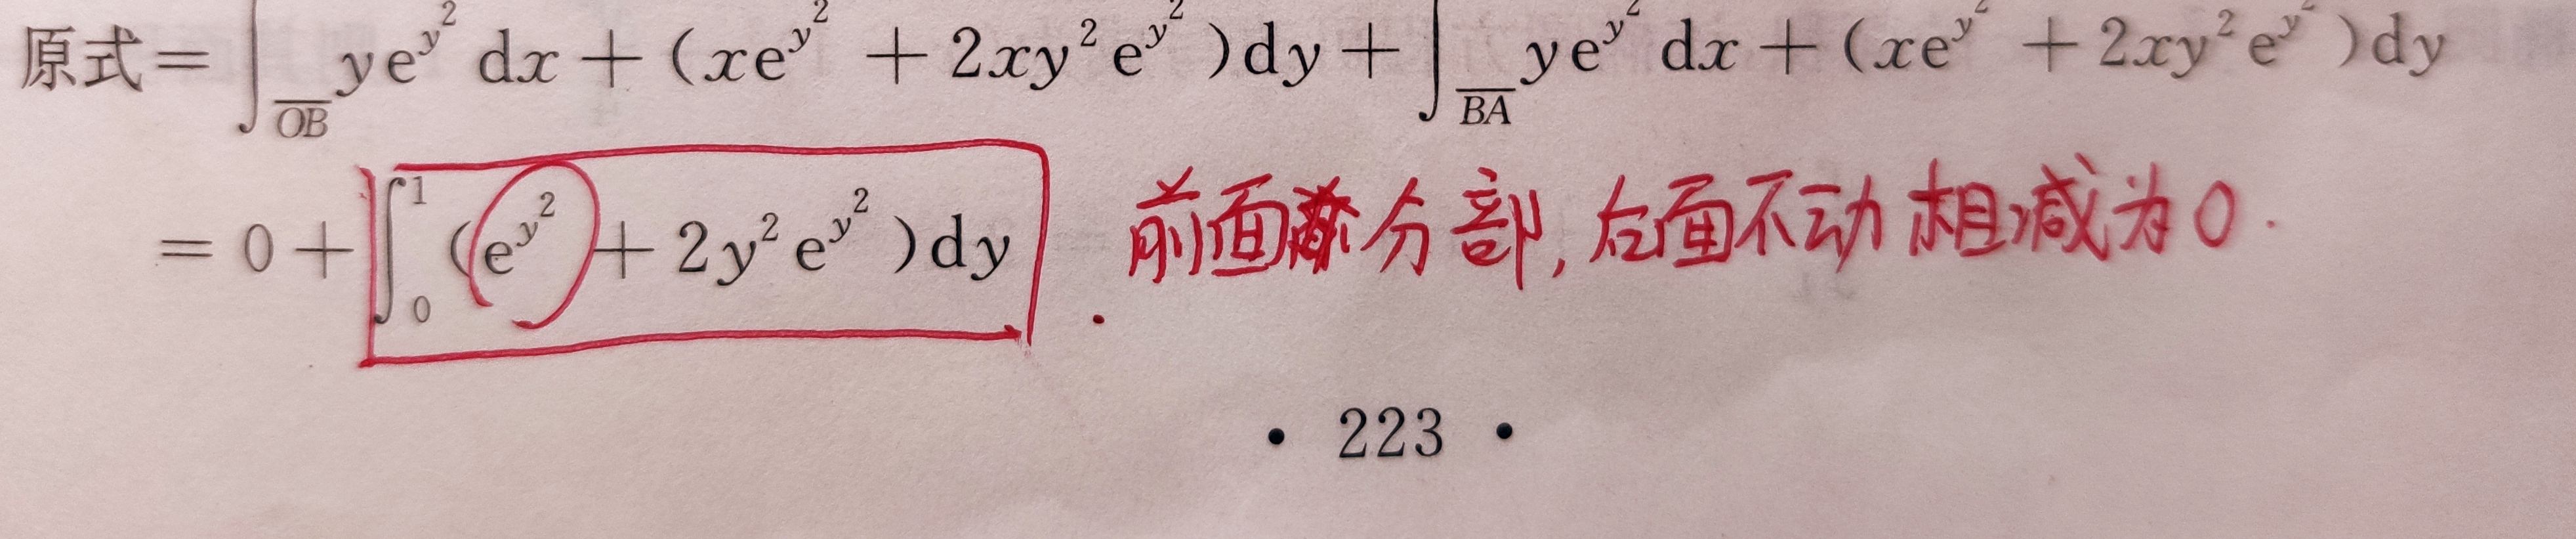 原式=∫_{OB} ye^{y²}dx+(xe^{y²}+2xy²e^{y²})dy+∫_{BA} ye^{y²}dx+(xe^{y²}+2xy²e^{y²})dy
=0+∫₀¹(e^{y²}+2y²e^{y²})dy 前面分部,右面不动相减为0.
· 223 ·